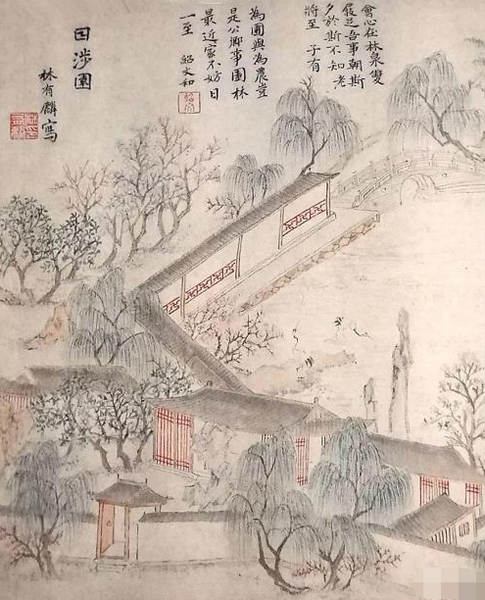 會心在林泉雙
屐足吾事朝斯
夕於斯不知老
將至 子有
為圃與為農豈
是公卿事園林
最近家不妨日
一至 紹文和
日涉園
林有麟寫